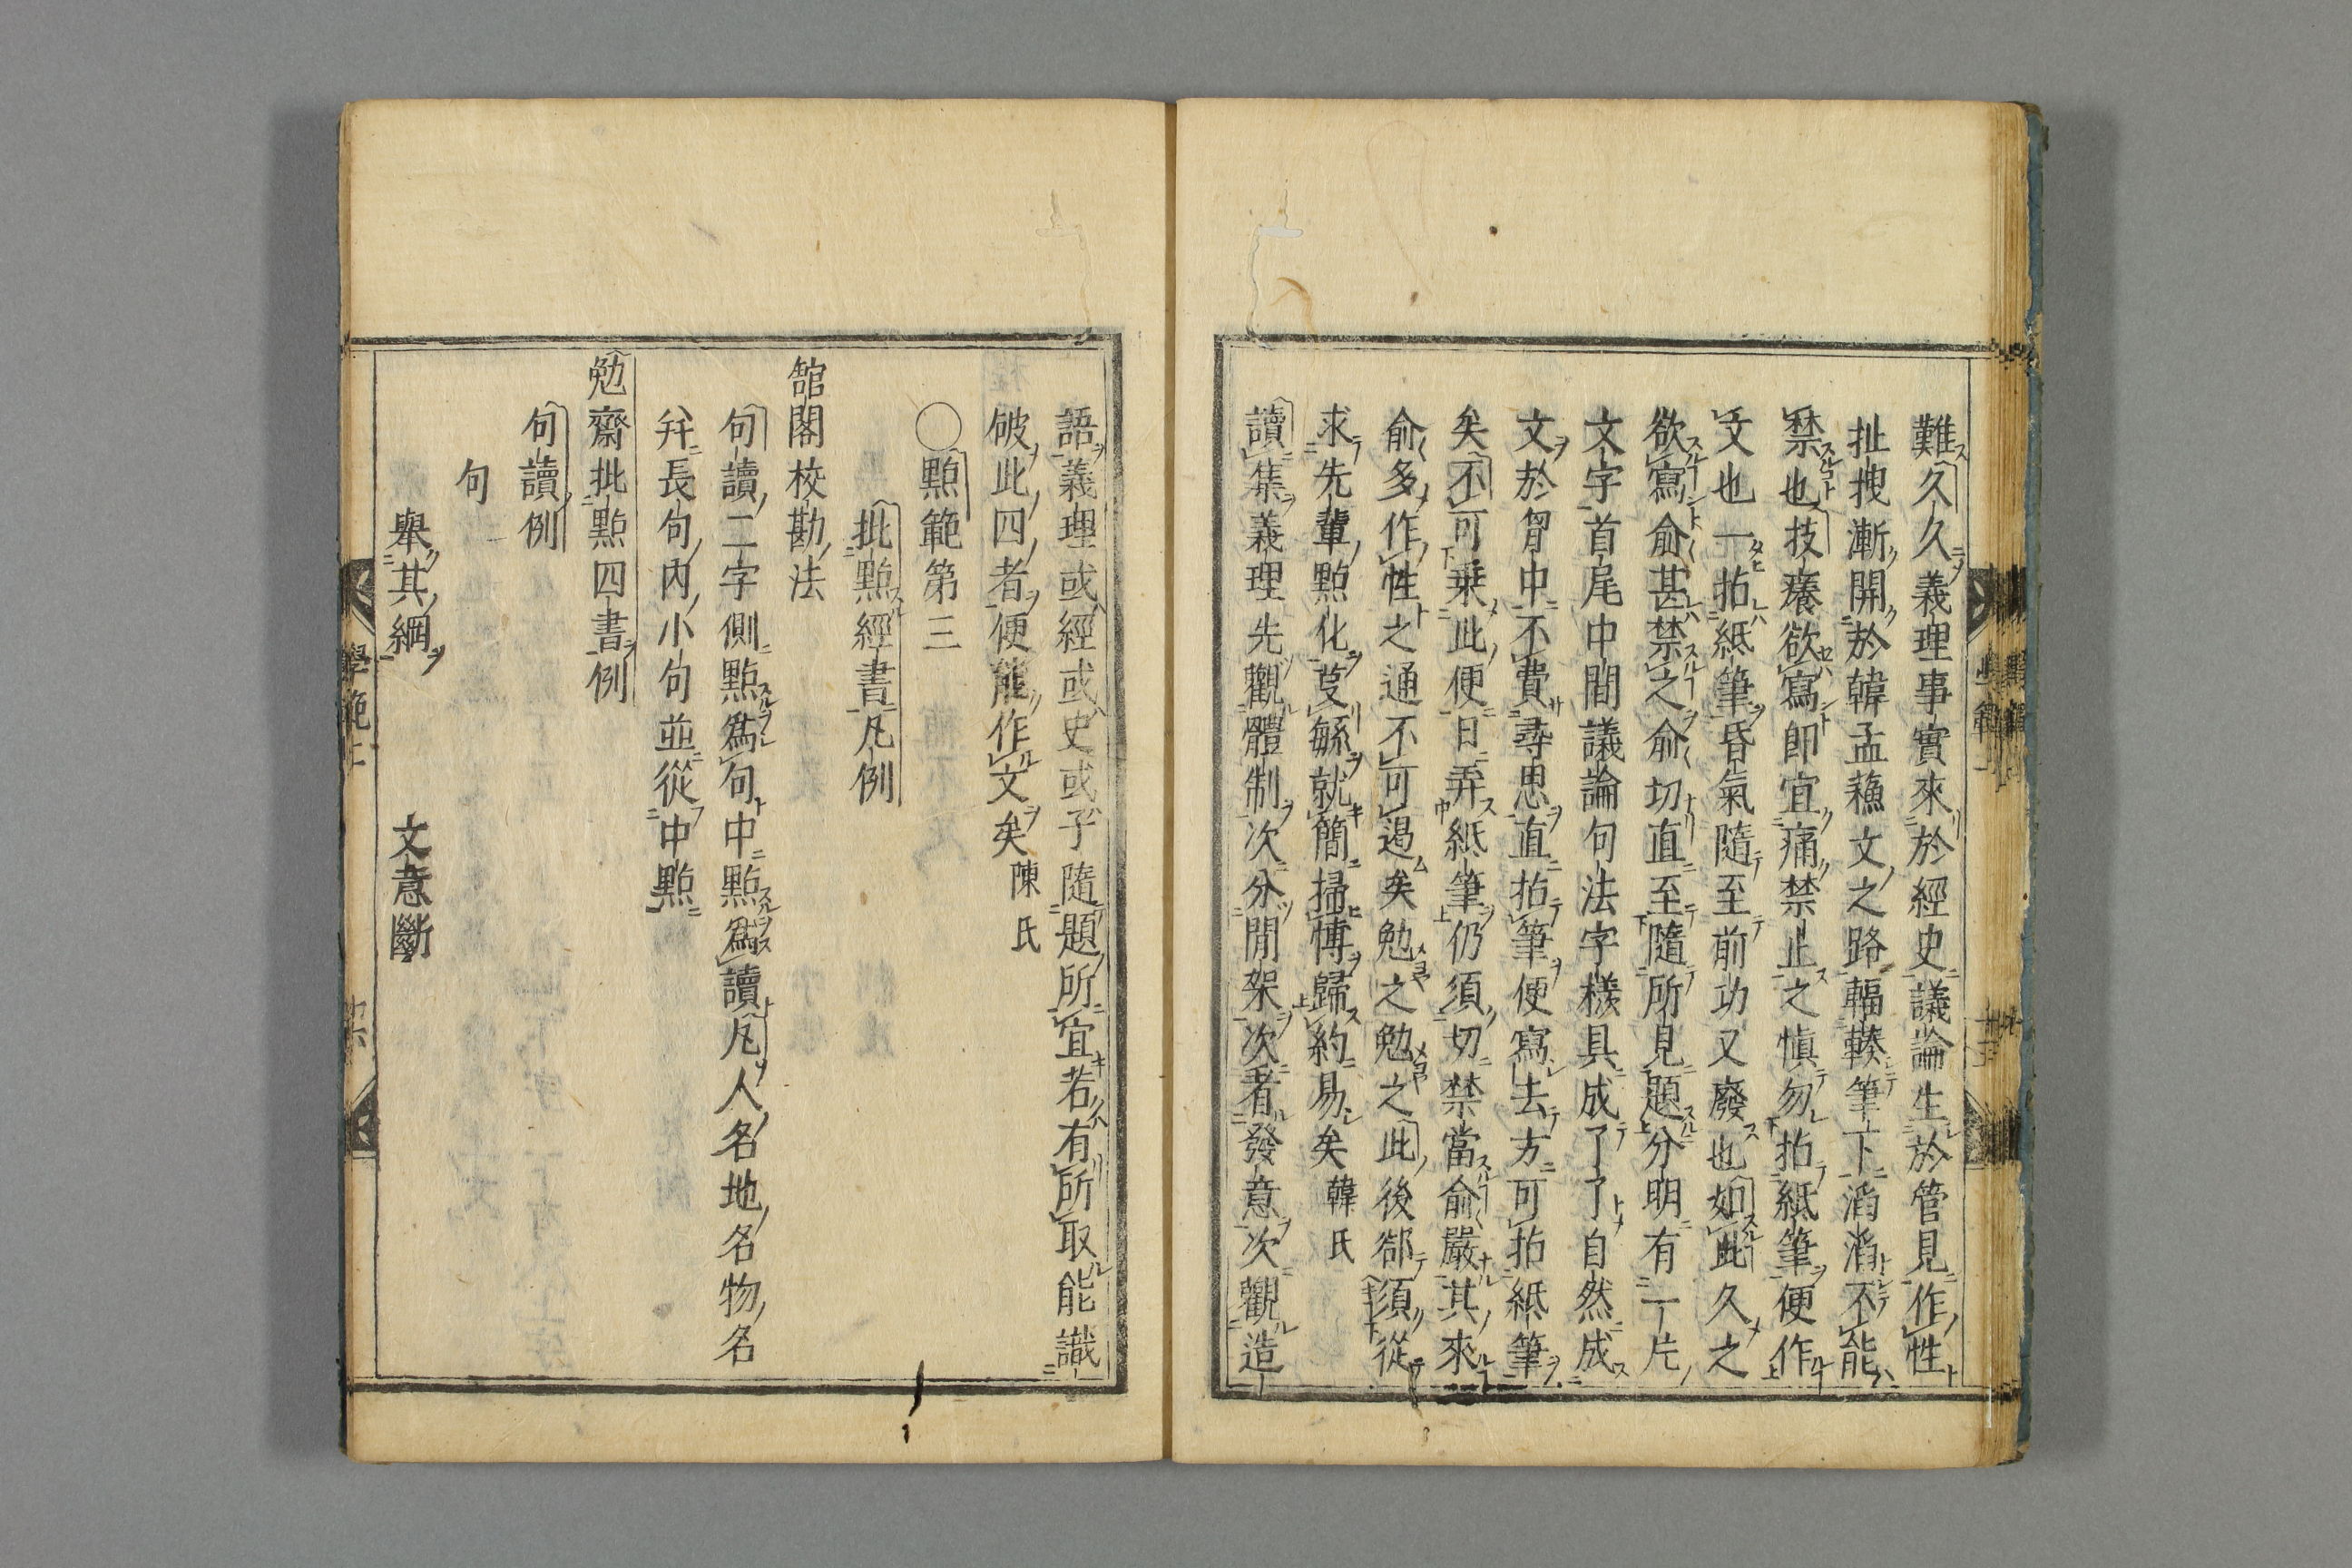 難久久義理事實來於經史議論生於管見作性
扯拽漸開於韓孟蘓文之路輻輳筆下滔滔不能
禁也技癢欲寫卽宜痛禁止之愼勿拈紙筆便作
文也一拈紙筆昏氣隨至前功又廢也如此久之
欲寫俞甚禁之俞切直至隨所見題分明有一片
文字首尾中間議論句法字様具成了了自然成
文於胷中不費尋思直拈筆便寫去方可拈紙筆
矣不可乗此便日弄紙筆仍須切禁當俞嚴其來
俞多作性之通不可遏矣勉之勉之此後郤須從
求先軰㸃化芟繁就簡掃博歸約易矣韓氏
讀集義理先觀體制次分間架次看發意次觀造
語義理或經或史或子隨題所宜若有所取能識
破此四者便能作文矣陳氏
○㸃範第三
批㸃經書凡例
舘閣校勘法
句讀二字側㸃爲句中㸃爲讀凡人名地名物名
幷長句內小句並從中㸃
勉齋批㸃四書例
句讀例
句
舉其綱 文意斷
學範上